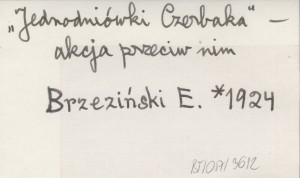 „Jednodniówki Czerbaka" –
akcja przeciw nim
Brzeziński E. *1924